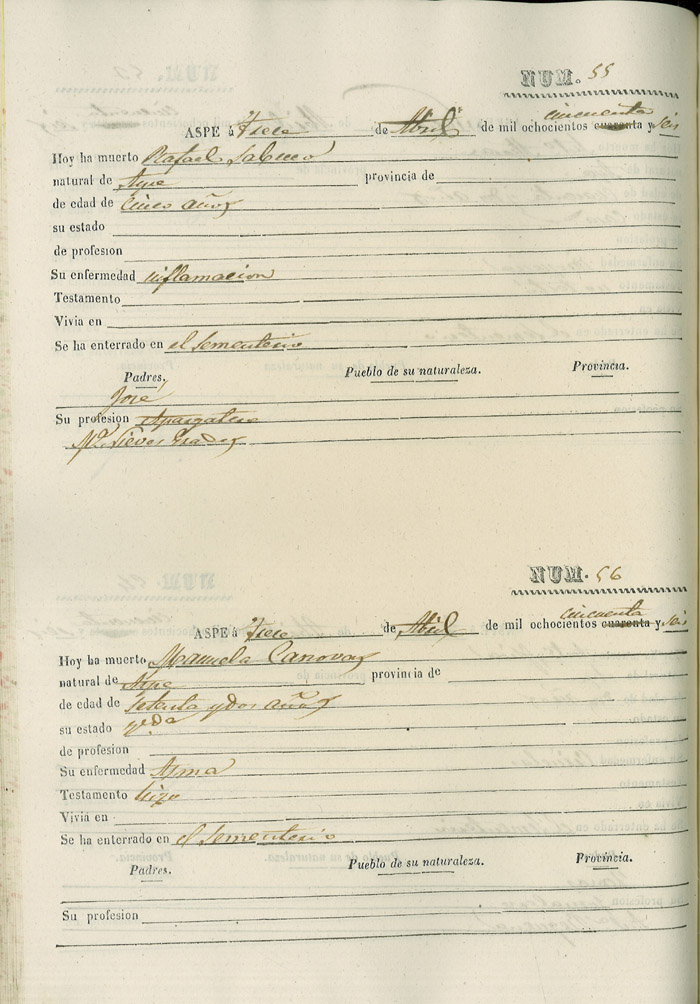 NUM. 55
ASPE á Trece de Abril de mil ochocientos cuarenta cincuenta y seis
Hoy ha muerto Rafael
natural de Aspe provincia de
de edad de Cinco años
su estado
de profesion
Su enfermedad inflamacion
Testamento
Vivia en
Se ha enterrado en el Sementerio
Padres, Pueblo de su naturaleza. Provincia.
Jose
Su profesion Alpargatero
Mª Nieves
NUM. 56
ASPE á Trece de Abril de mil ochocientos cuarenta cincuenta y seis
Hoy ha muerto Manuela Canovas
natural de Aspe provincia de
de edad de Setenta y dos años
su estado Vda
de profesion
Su enfermedad Asma
Testamento hizo
Vivia en
Se ha enterrado en el Sementerio
Padres. Pueblo de su naturaleza. Provincia.
Su profesion